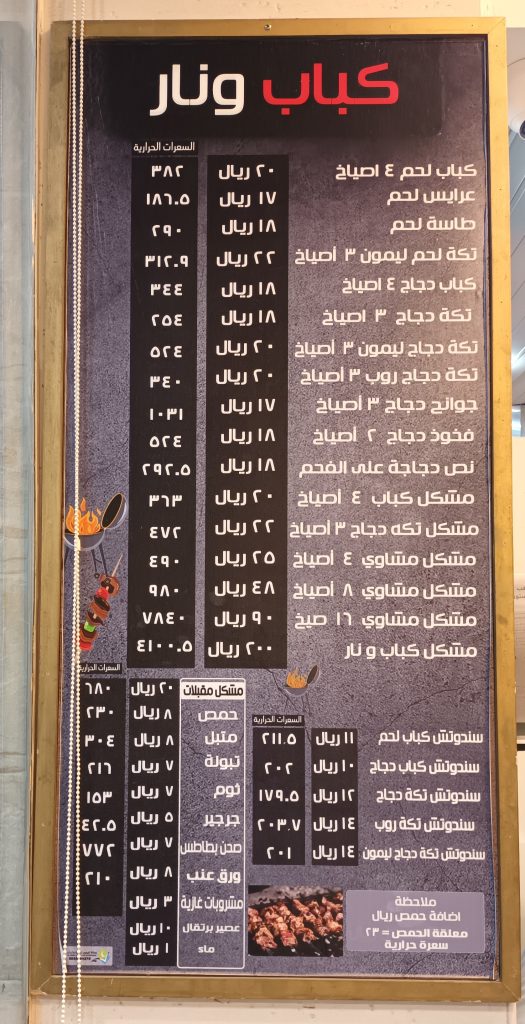 كباب ونار
السعرات الحرارية
كباب لحم ٤ اصياخ ٢٠ ريال ٣٨٢
عرايس لحم ١٧ ريال ١٨٦.٥
طاسة لحم ١٨ ريال ٢٩٠
تكة لحم ليمون ٣ أصياخ ٢٢ ريال ٣١٢.٩
كباب دجاج ٤ اصياخ ١٨ ريال ٣٤٤
تكة دجاج ٣ اصياخ ١٨ ريال ٢٥٤
تكة دجاج ليمون ٣ أصياخ ٢٠ ريال ٥٢٤
تكة دجاج روب ٣ أصياخ ٢٠ ريال ٣٤٠
جوانح دجاج ٣ أصياخ ١٧ ريال ١٠٣١
فخوذ دجاج ٢ أصياخ ١٨ ريال ٥٢٤
نص دجاجة على الفحم ١٨ ريال ٢٩٢.٥
مشكل كباب ٤ أصياخ ٢٠ ريال ٣٦٣
مشكل تكه دجاج ٣ أصياخ ٢٢ ريال ٤٧٢
مشكل مشاوي ٤ أصياخ ٢٥ ريال ٤٩٠
مشكل مشاوي ٨ أصياخ ٤٨ ريال ٩٨٠
مشكل مشاوي ١٦ صيخ ٩٠ ريال ٧٨٤٠
مشكل كباب و نار ٢٠٠ ريال ٤١٠٠.٥
السعرات الحرارية
سندوتش كباب لحم ١١ ريال ٢١١.٥
سندوتش كباب دجاج ١٠ ريال ٢٠٢
سندوتش تكة دجاج ١٢ ريال ١٧٩.٥
سندوتش تكة روب ١٤ ريال ٢٠٣.٧
سندوتش تكة دجاج ليمون ١٤ ريال ٢٠١
ملاحظة
اضافة حمص ريال
معلقة الحمص = ٢٣
سعرة حرارية
السعرات الحرارية
مشكل مقبلات ٢٠ ريال ٦٨٠
حمص ٨ ريال ٢٣٠
متبل ٨ ريال ٣٠٤
تبولة ٧ ريال ٢١٦
ثوم ٧ ريال ١٥٣
جرجير ٥ ريال ٤٢.٥
صحن بطاطس ٧ ريال ٧٧٢
ورق عنب ٨ ريال ٢١٠
مشروبات غازية ٣ ريال
عصير برتقال ١٠ ريال
ماء ١ ريال